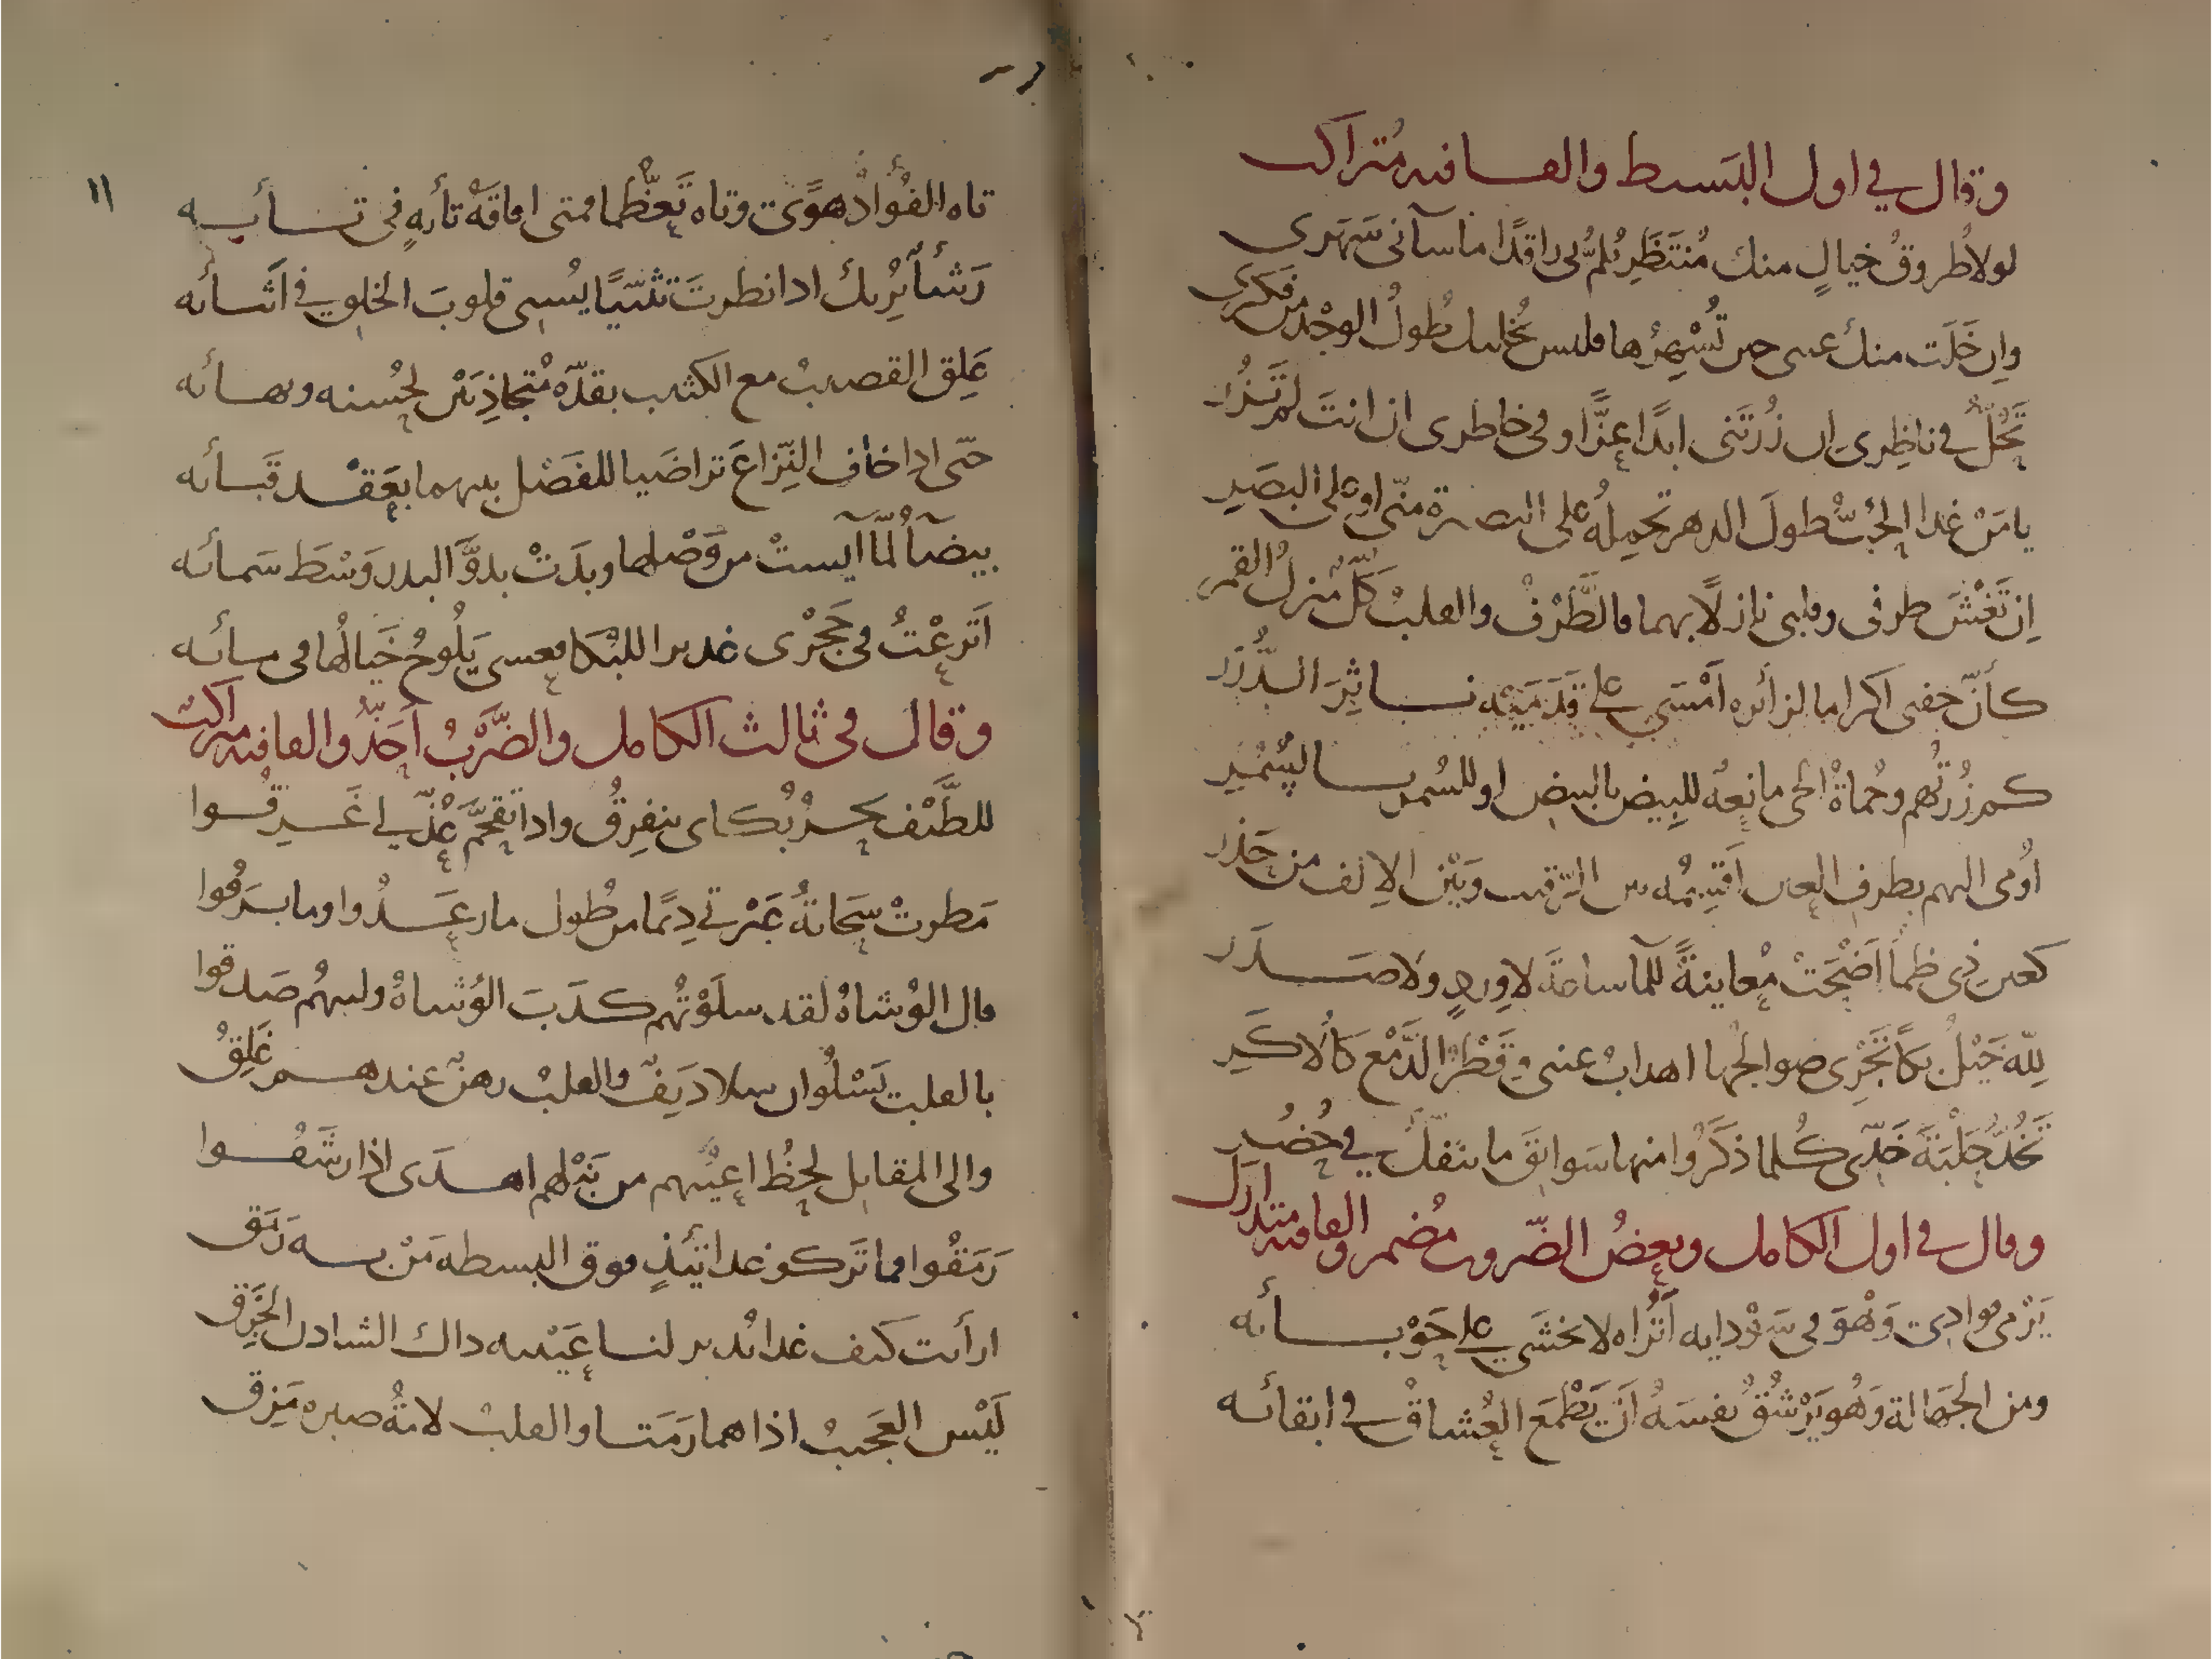 وقال في اول البسيط والقافيه متراكب
لولا طُروقُ خيالٍ منك مُنتَظَرِ يُلمُّ بي راقدًا ما سآني سَهَرى
وان خَلَت منك عينى حين تُسْهِرُها فليس يُخليك طُولُ الوجْد من فكرى
تَحُلُّ في ناظِرى ان زُرتَنى ابدًا عِزًّا وفي خاطرى ان انتَ لم تَزُر
يا مَنْ غدا الحُبُّ طولَ الدهر تحمِلُه على البصيرة منّى او على البصَرِ
اِن تَغْشَ طرفى وقلبى نازلًا بهما فالطَّرْفُ والقلبُ كلٌّ منزلُ القمر
كأنّ جفنى اكراما لزائره اَمْسَى على قَدَمَيْه نـاثِرَ الدُّرَر
كم زُرتُهم وحُماةُ الحى مانِعةٌ للبِيض بالبيض او للسُمر بـالسُمُرِ
اُومى اليهم بطرف العين اَقسِمُه بين الرَّقيب وبَيْن الاِلف من حَذَر
كعين ذى ظمأ اَضْحَتْ مُعاينةً للمآ ساعةَ لا وِردٍ ولا صـدَر
لِلّه خَيْلُ بكًا تَجْرِى صوالجُها اهدابُ عينى وقَطْرُ الدَّمْع كالأُكَرِ
تَخُدُّ حَلْبَةَ خَدّى كُلما ذكَرُوا منها سَوابقَ ما تنفكّ في حُضُرِ
وقال في اول الكامل وبعضُ الضّروب مُضمر والقافيه متدارك
يَرْمى فوادى وَهْوَ في سَوْدايه اَتُراه لا يخشَى على حَوْبـائه
ومن الجَهالة وَهُو يَرْشُقُ نفسَهُ اَن يَطْمَعَ العُشاقُ في ابقائه
١١
تاه الفُؤادُ هوًى وتاه تَعظُّما فمتى افاقَةُ تائهٍ في تـائـه
رَشَأٌ يُرِيك اذا نظرتَ تثنّيًا يُسبى قلوبَ الخلق في اَثنـائه
عَلِق القضيبُ مع الكثيب بقدّه مُتجاذِبَيْن لحُسنه وبهـائه
حتّى اذا خاف النِّزاعَ تراضَيا للفَصْل بينهما بعَقْـد قَبائه
بيضآءُ لمّا آيستْ من وَصْلها وبدَتْ بدوَّ البدر وَسْطَ سَمائه
اَترعْتُ في حَجْرى غديرا للبُكا فعسى يَلُوحُ خَيالُها في مـائه
وقال في ثالث الكامل والضَّرْبُ اَحَذُّ والقافيه متراكب
للطَّيْف بحـرُ بُكـاى ينفرِقُ واذا تقحَّمَ عُذّلي غَـرِقُـوا
مَطرتْ سَحابةُ عَبْرتى دِيَمًا من طُول ما رعَـدُوا وما بـرَقُوا
قال الوُشاةُ لقد سلَوْتُهم كـذَبَ الوُشاةُ وليتهُم صَدقوا
بالقلب يَسْلُو ان سلا دَنِفٌ والقلبُ رهنٌ عندهـم غَلِقُ
والى المقاتِل لحظُ اعيُنهم من نَبْلهم اهـدَى اذا رشَقُـوا
رَمَقُوا فما تَركوا غداتَئذٍ فوق البسيطه مَنْ بـه رَمَق
ارأيت كيف غدا يُدير لنـا عَيْنيه ذاك الشادن الخَرِق
لَيْس العَجيبُ اذا هما رَمَتـا والقلبُ لامةُ صبره مَزِق